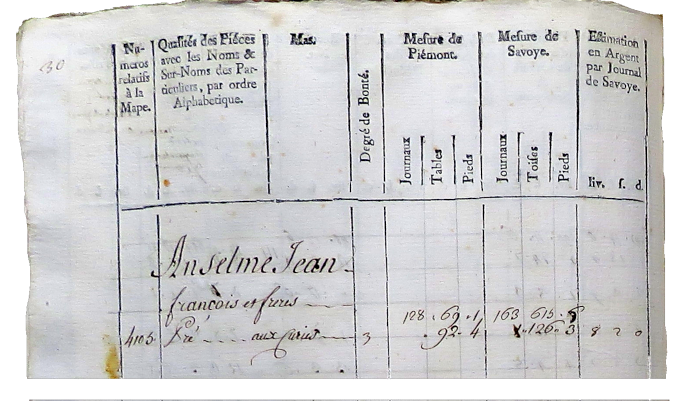 30
Numeros relatifs à la Mape.
Qualités des Piéces avec les Noms & Sur-Noms des Particuliers, par ordre Alphabetique.
Mas.
Degré de Bonté.
Mesure de Piémont.
Journaux Tables Pieds
Mesure de Savoye.
Journaux Toises Pieds
Estimation en Argent par Journal de Savoye.
liv. s. d.
Anselme Jean
françois et freres
128 . 69 . 1 163 615 . 6
4105 Pré aux 3 . 92 . 4 1 . 126 . 3 8 2 0